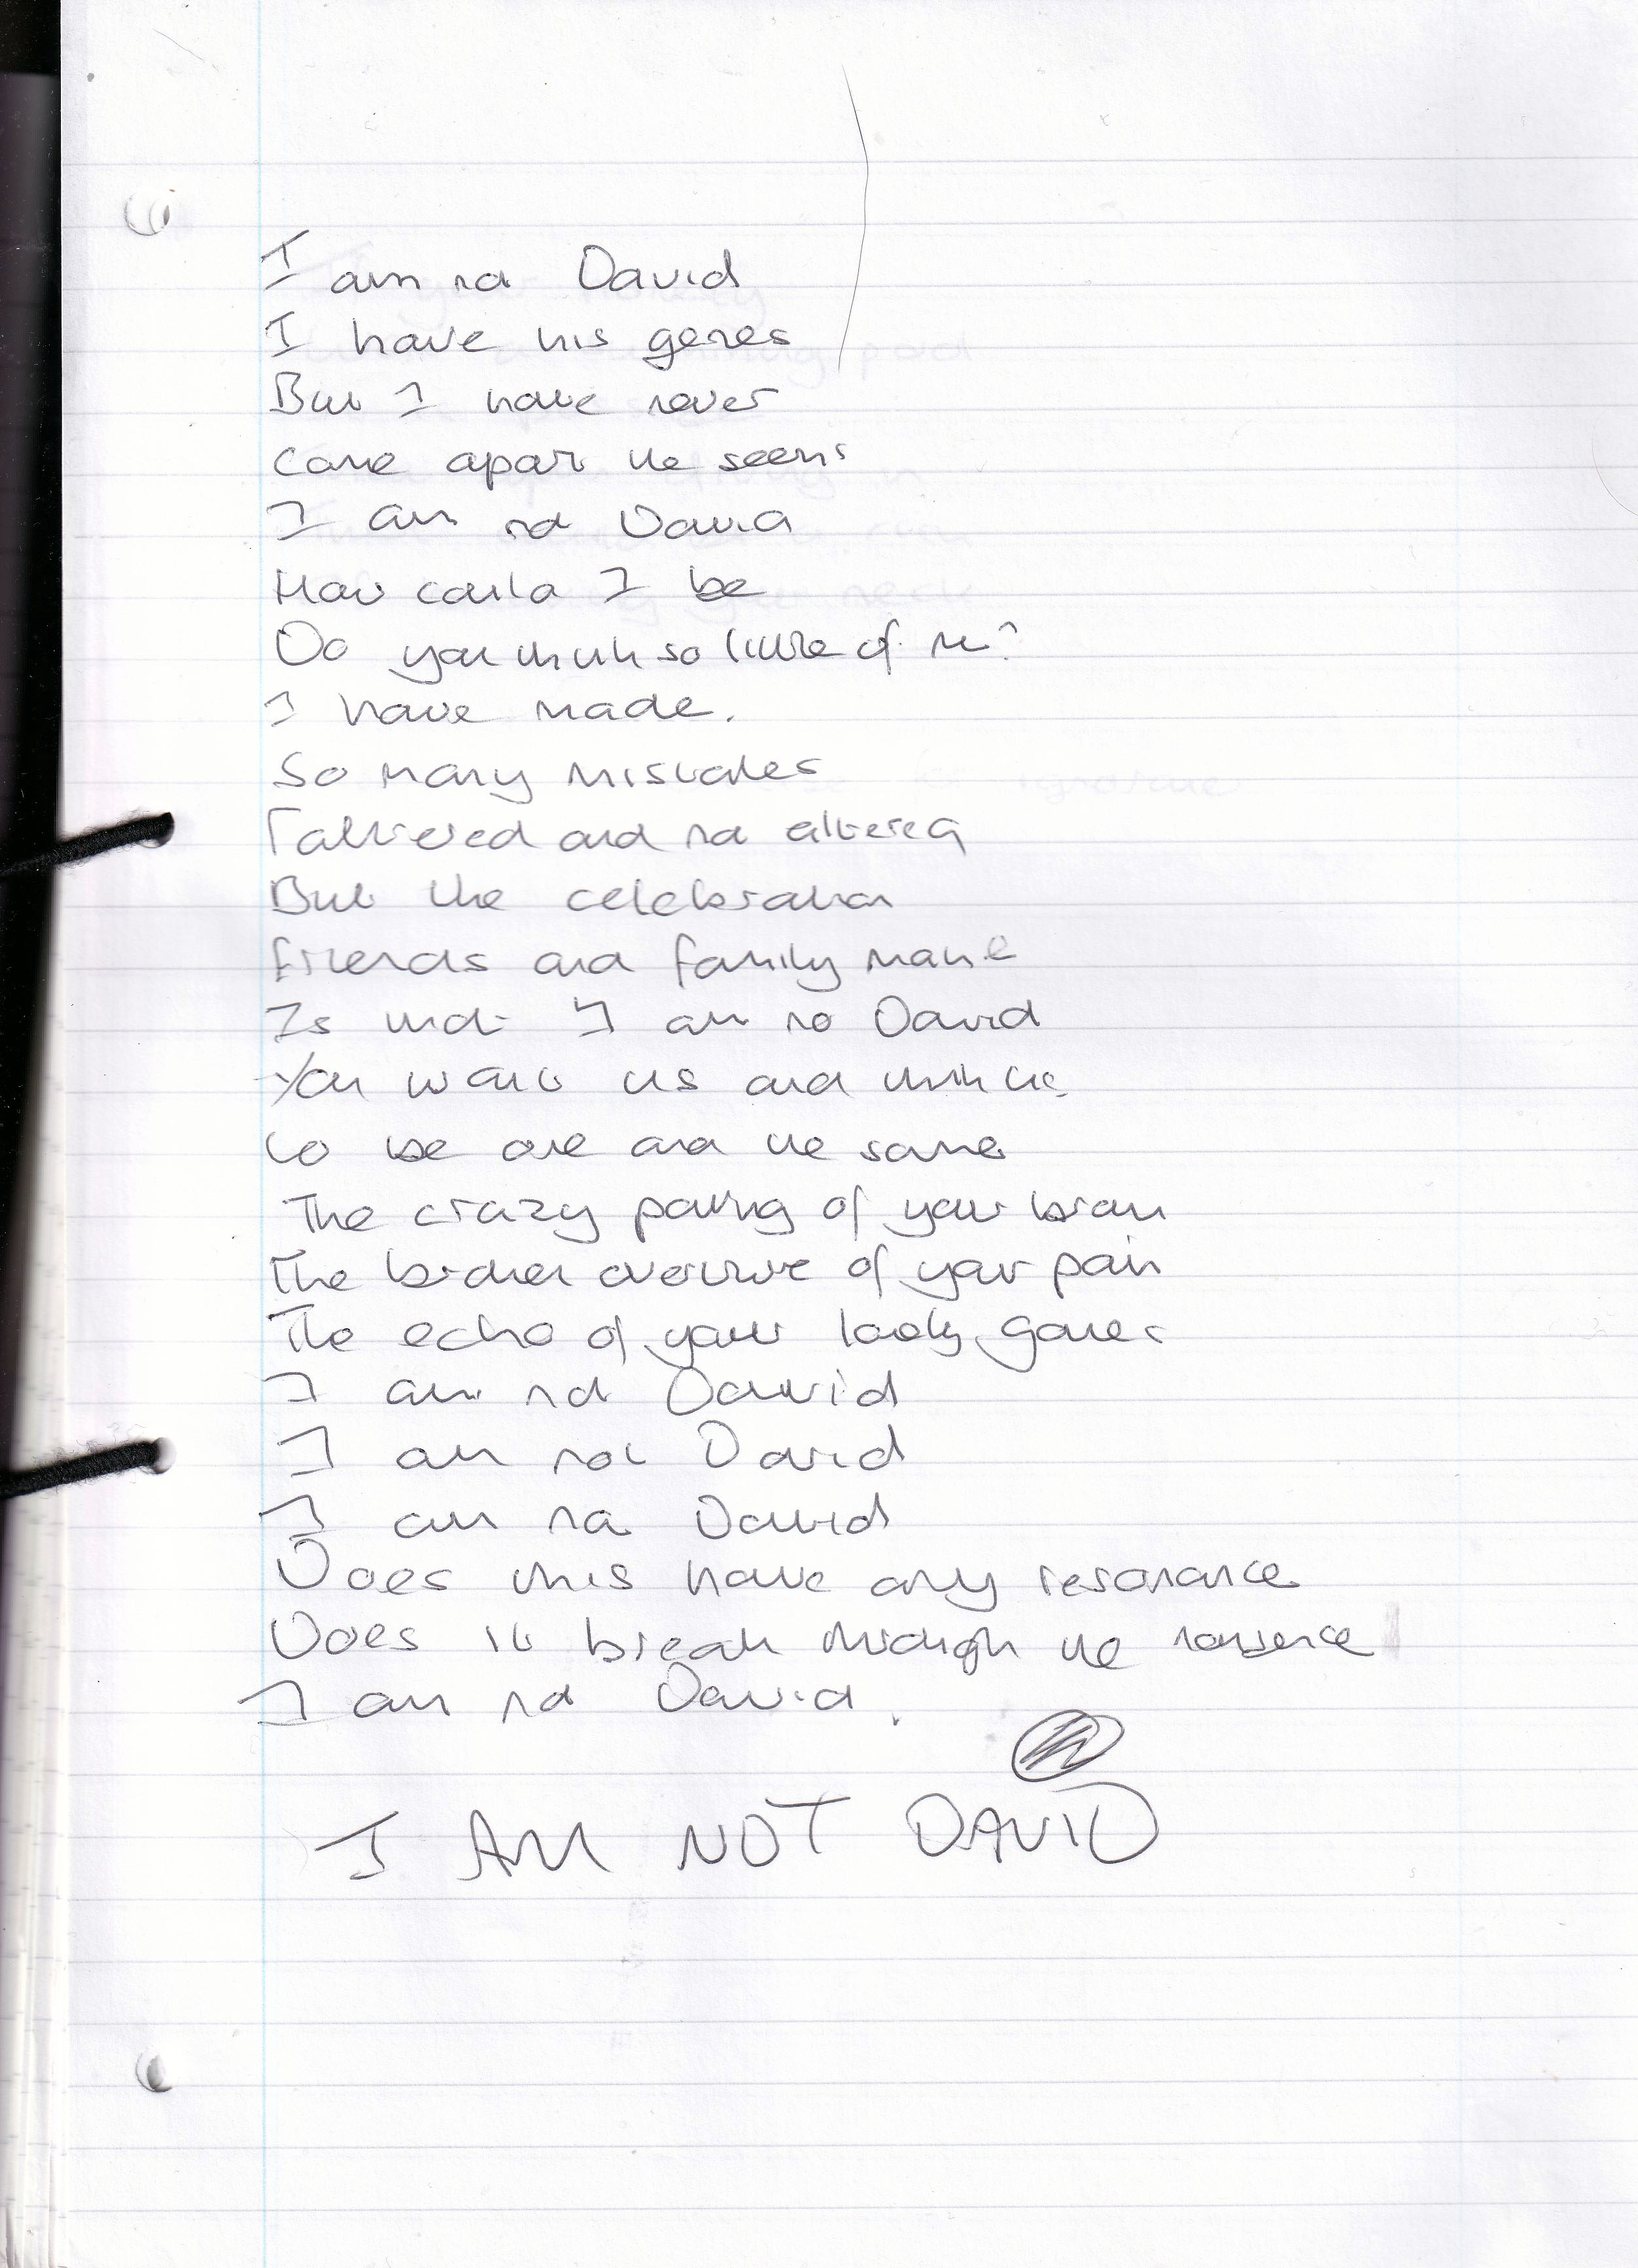 I am not David
I have his genes
But I have never
Come apart the seems
I am not David
How could I be
Do you think so little of me?
I have made.
So many mistakes
Faltered and not altered
But the celebration
friends and family make
Is that I am no David
You want us and think the
to be one and the same
The crazy paving of your brain
The broken overture of your pain
The echo of your lovely games
I am not David
I am not David
I am not David
Does this have any resonance
Does it break through the nonsence
I am not David.
I AM NOT DAVID